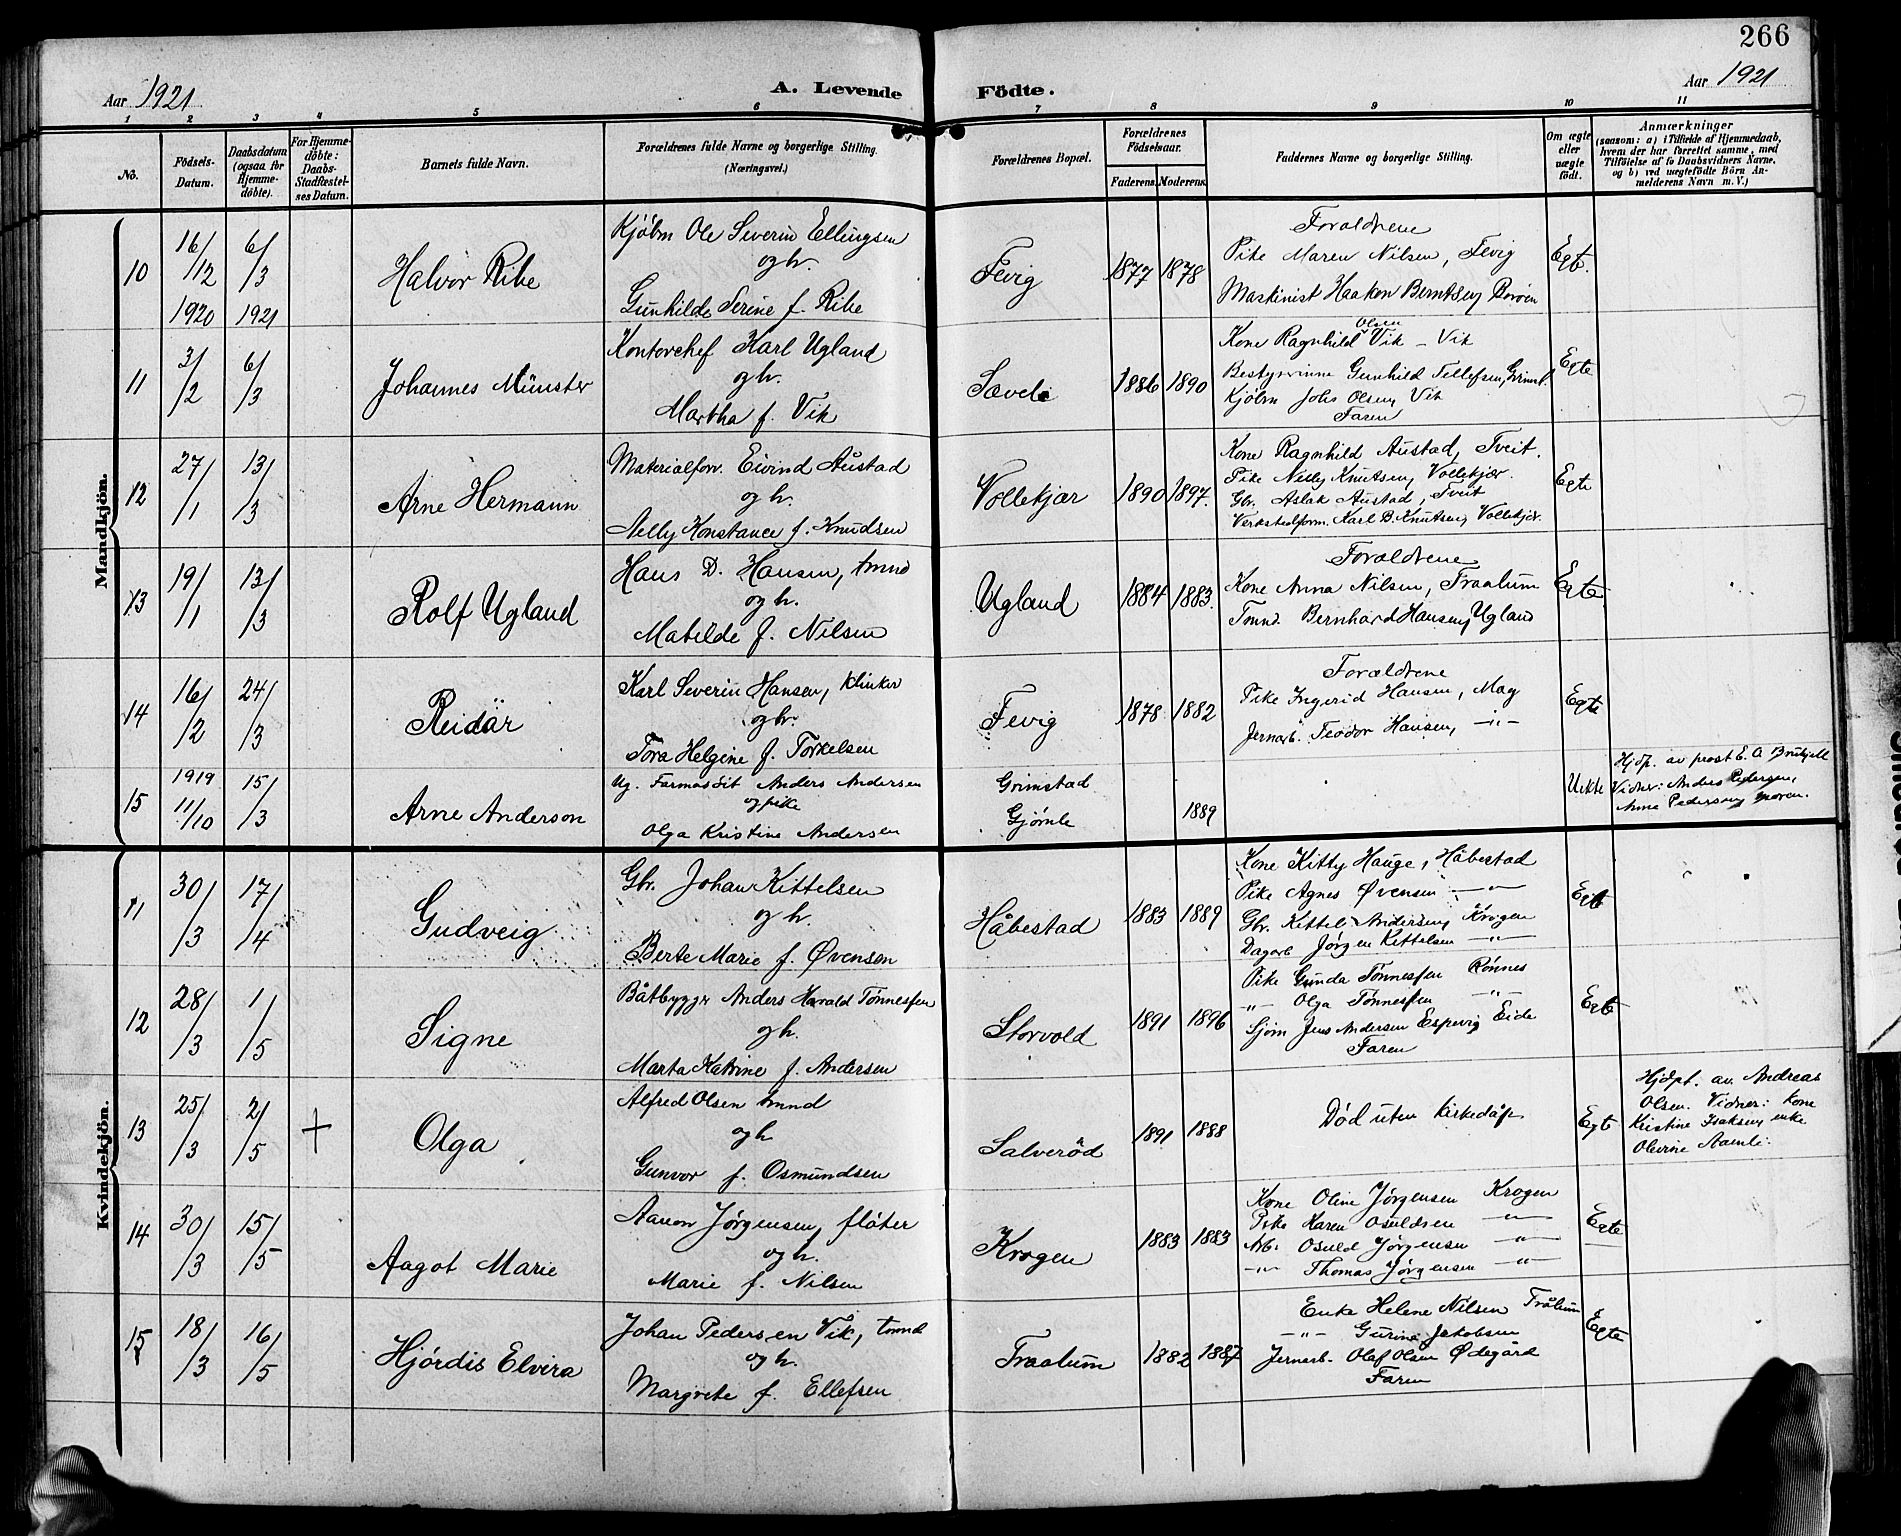 266
Aar 1921
A. Levende Födte.
Aar 1921
1 2 3 4 5 6 7 8 9 10 11
No.
Födsels-Datum.
Daabsdatum (ogsaa för Hjemme-döbte).
For Hjemme-döbte: Daabs-Stadfæstel-ses Datum.
Barnets fulde Navn.
Forældrenes fulde Navne og borgerlige Stilling. (Næringsvei.)
Forældrenes Bopæl.
Forældrenes Födselsaar.
Faderens. Moderens.
Faddernes Navne og borgerlige Stilling.
Om ægte eller uægte födt.
Anmærkninger
(saasom: a) i Tilfælde af Hjemmedaab, hvem der har forrettet samme, med Tilföielse af to Daabsvidners Navne, og b) ved uægtefödte Börn An-melderens Navn m. V.)
Mandkjön.
10 16/12 1920 6/3 1921 Halvor Ribe
Kjøbm Ole Severin Ellingsen
og h.
Gunhilde Serine f. Ribe
Fevig 1877 1878
Forældrene
Pike Maren Nilsen, Fevig
Maskinist Haakon Berntsen,
Egt.
11 3/2 6/3 Johannes Münster
Kontorchef Karl Ugland
og h.
Martha f. Vik
Sæveli 1886 1890
Kone Ragnhild Olsen Vik - Vik
Bestyrerinne Gunhild Tellefsen, Grimst.
Kjøbm Johs Olsen, Vik
Faren
Egte
12 27/1 13/3 Arne Hermann
Materialforv. Eivind Austad
og h.
Nelly Konstance f. Knudsen
Vollekjær 1890 1897.
Kone Ragnhild Austad, Tveit.
Pike Nelly Knutsen, Vollekjær.
Gbr. Aslak Austad, Tveit
Verkstedform. Karl B. Knutsen, Vollekjær.
Egte
13 19/1 13/3 Rolf Ugland
Hans D. Hansen, tmnd
og h.
Matilde f. Nilsen
Ugland 1884 1883.
Forældrene
Kone Anna Nilsen, Traalum
Tmnd. Bernhard Hansen, Ugland
Egte
14 16/2 24/3 Reidar
Karl Severin Hansen, klinker
og h.
Tora Helgine f. Torkelsen
Fevig 1878 1882
Forældrene
Pike Ingerid Hansen, Mag
Jernarb. Teodor Hansen, -"-
Egte
15 1919 11/10 15/3 Arne Anderson
Ug. Farmasöit Anders Andersen
og pike
Olga Kristine Andersen
Grimstad
Gjømle 1889
Uekte
Hjdp. av prost E. A.
Vidner: Anders Pedersen,
Anne Pedersen, moren.
Kvindekjön.
11 30/3 17/4 Gudveig
Gbr. Johan Kittelsen
og h.
Berte Marie f. Øvensen
Håbestad 1883 1889
Kone Kitty Hauge, Håbestad
Pike Agnes Øvensen -"-
Gbr. Kittel Andersen, Krogen
Dagarb Jørgen Kittelsen -"-
Egt
12 28/3 1/5 Signe
Båtbygger Anders Harald Tønnessen
og h.
Marta Katrine f. Andersen
Storvold 1891 1896
Pike Gunda Tønnessen Rønnes
-"- Olga Tønnessen -"-
Sjøm Jens Andersen Espevig Eide
Faren
Egte
13 25/3 2/5 + Olga
Alfred Olsen tmnd
og h
Gunvor f. Osmundsen
Salveröd 1891 1888
Död uten kirkedåp
Egt
Hjdpt. av Andreas
Olsen. Vidner: Kone
Kristine Isaksen, enke
Olevine Aamli.
14 30/3 15/5 Aagot Marie
Aanon Jørgensen, fløter
og h.
Marie f. Nilsen
Krogen 1883 1883
Kone Oline Jørgensen Krogen
Pike Karen Osuldsen -"-
Arb: Osuld Jørgensen -"-
-"- Thomas Jørgensen -"-
Egte
15 18/3 16/5 Hjördis Elvira
Johan Pedersen Vik, tmnd
og h.
Margrete f. Ellefsen
Traalum 1882 1887
Enke Helene Nilsen Trålum
-"- Gurine Jakobsen
Jernarb. Olaf Olsen Ødegård
Faren
Egte